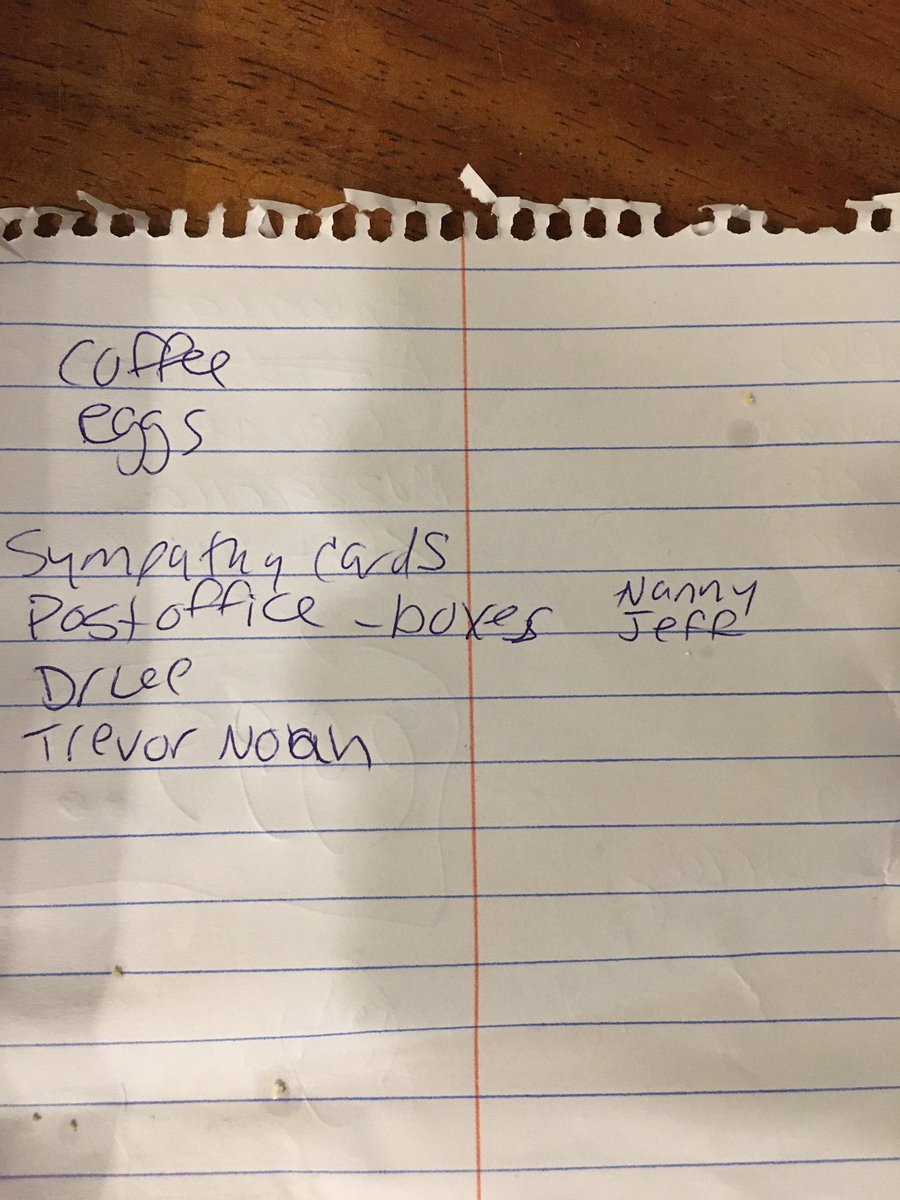 coffee
eggs
Sympathy cards
Post office - boxes Nanny
Jeff
Dr Lee
Trevor Noah